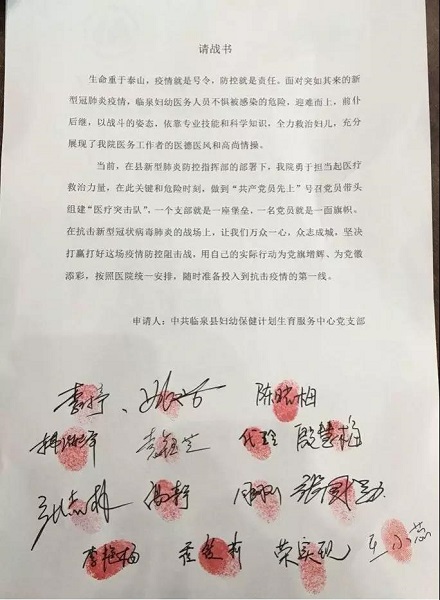 请战书
生命重于泰山，疫情就是号令，防控就是责任。面对突如其来的新
型冠肺炎疫情，临泉妇幼医务人员不惧被感染的危险，迎难而上，前仆
后继，以战斗的姿态，依靠专业技能和科学知识，全力救治妇儿，充分
展现了我院医务工作者的医德医风和高尚情操。
当前，在县新型肺炎防控指挥部的部署下，我院勇于担当起医疗
救治力量，在此关键和危险时刻，做到“共产党员先上”号召党员带头
组建“医疗突击队”，一个支部就是一座堡垒，一名党员就是一面旗帜。
在抗击新型冠状病毒肺炎的战场上，让我们万众一心，众志成城，坚决
打赢打好这场疫情防控阻击战，用自己的实际行动为党旗增辉、为党徽
添彩，按照医院统一安排，随时准备投入到抗击疫情的第一线。
申请人：中共临泉县妇幼保健计划生育服务中心党支部
李婷、
陈晓梅
代玲 殷慧梅
高静 张国
李艳梅 荣实现 王小蕊